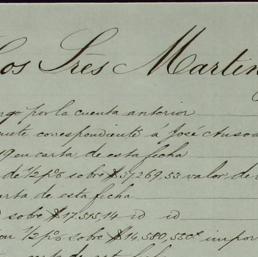 Los Sres Martin
por la cuenta anterior
correspondiente à José Auso
19 en carta de esta fecha
de ½ p% sobre $57269,53 valor, de
carta de esta fecha
sobre $17,515,14 id id
½ p% sobre $14,580,55 impor